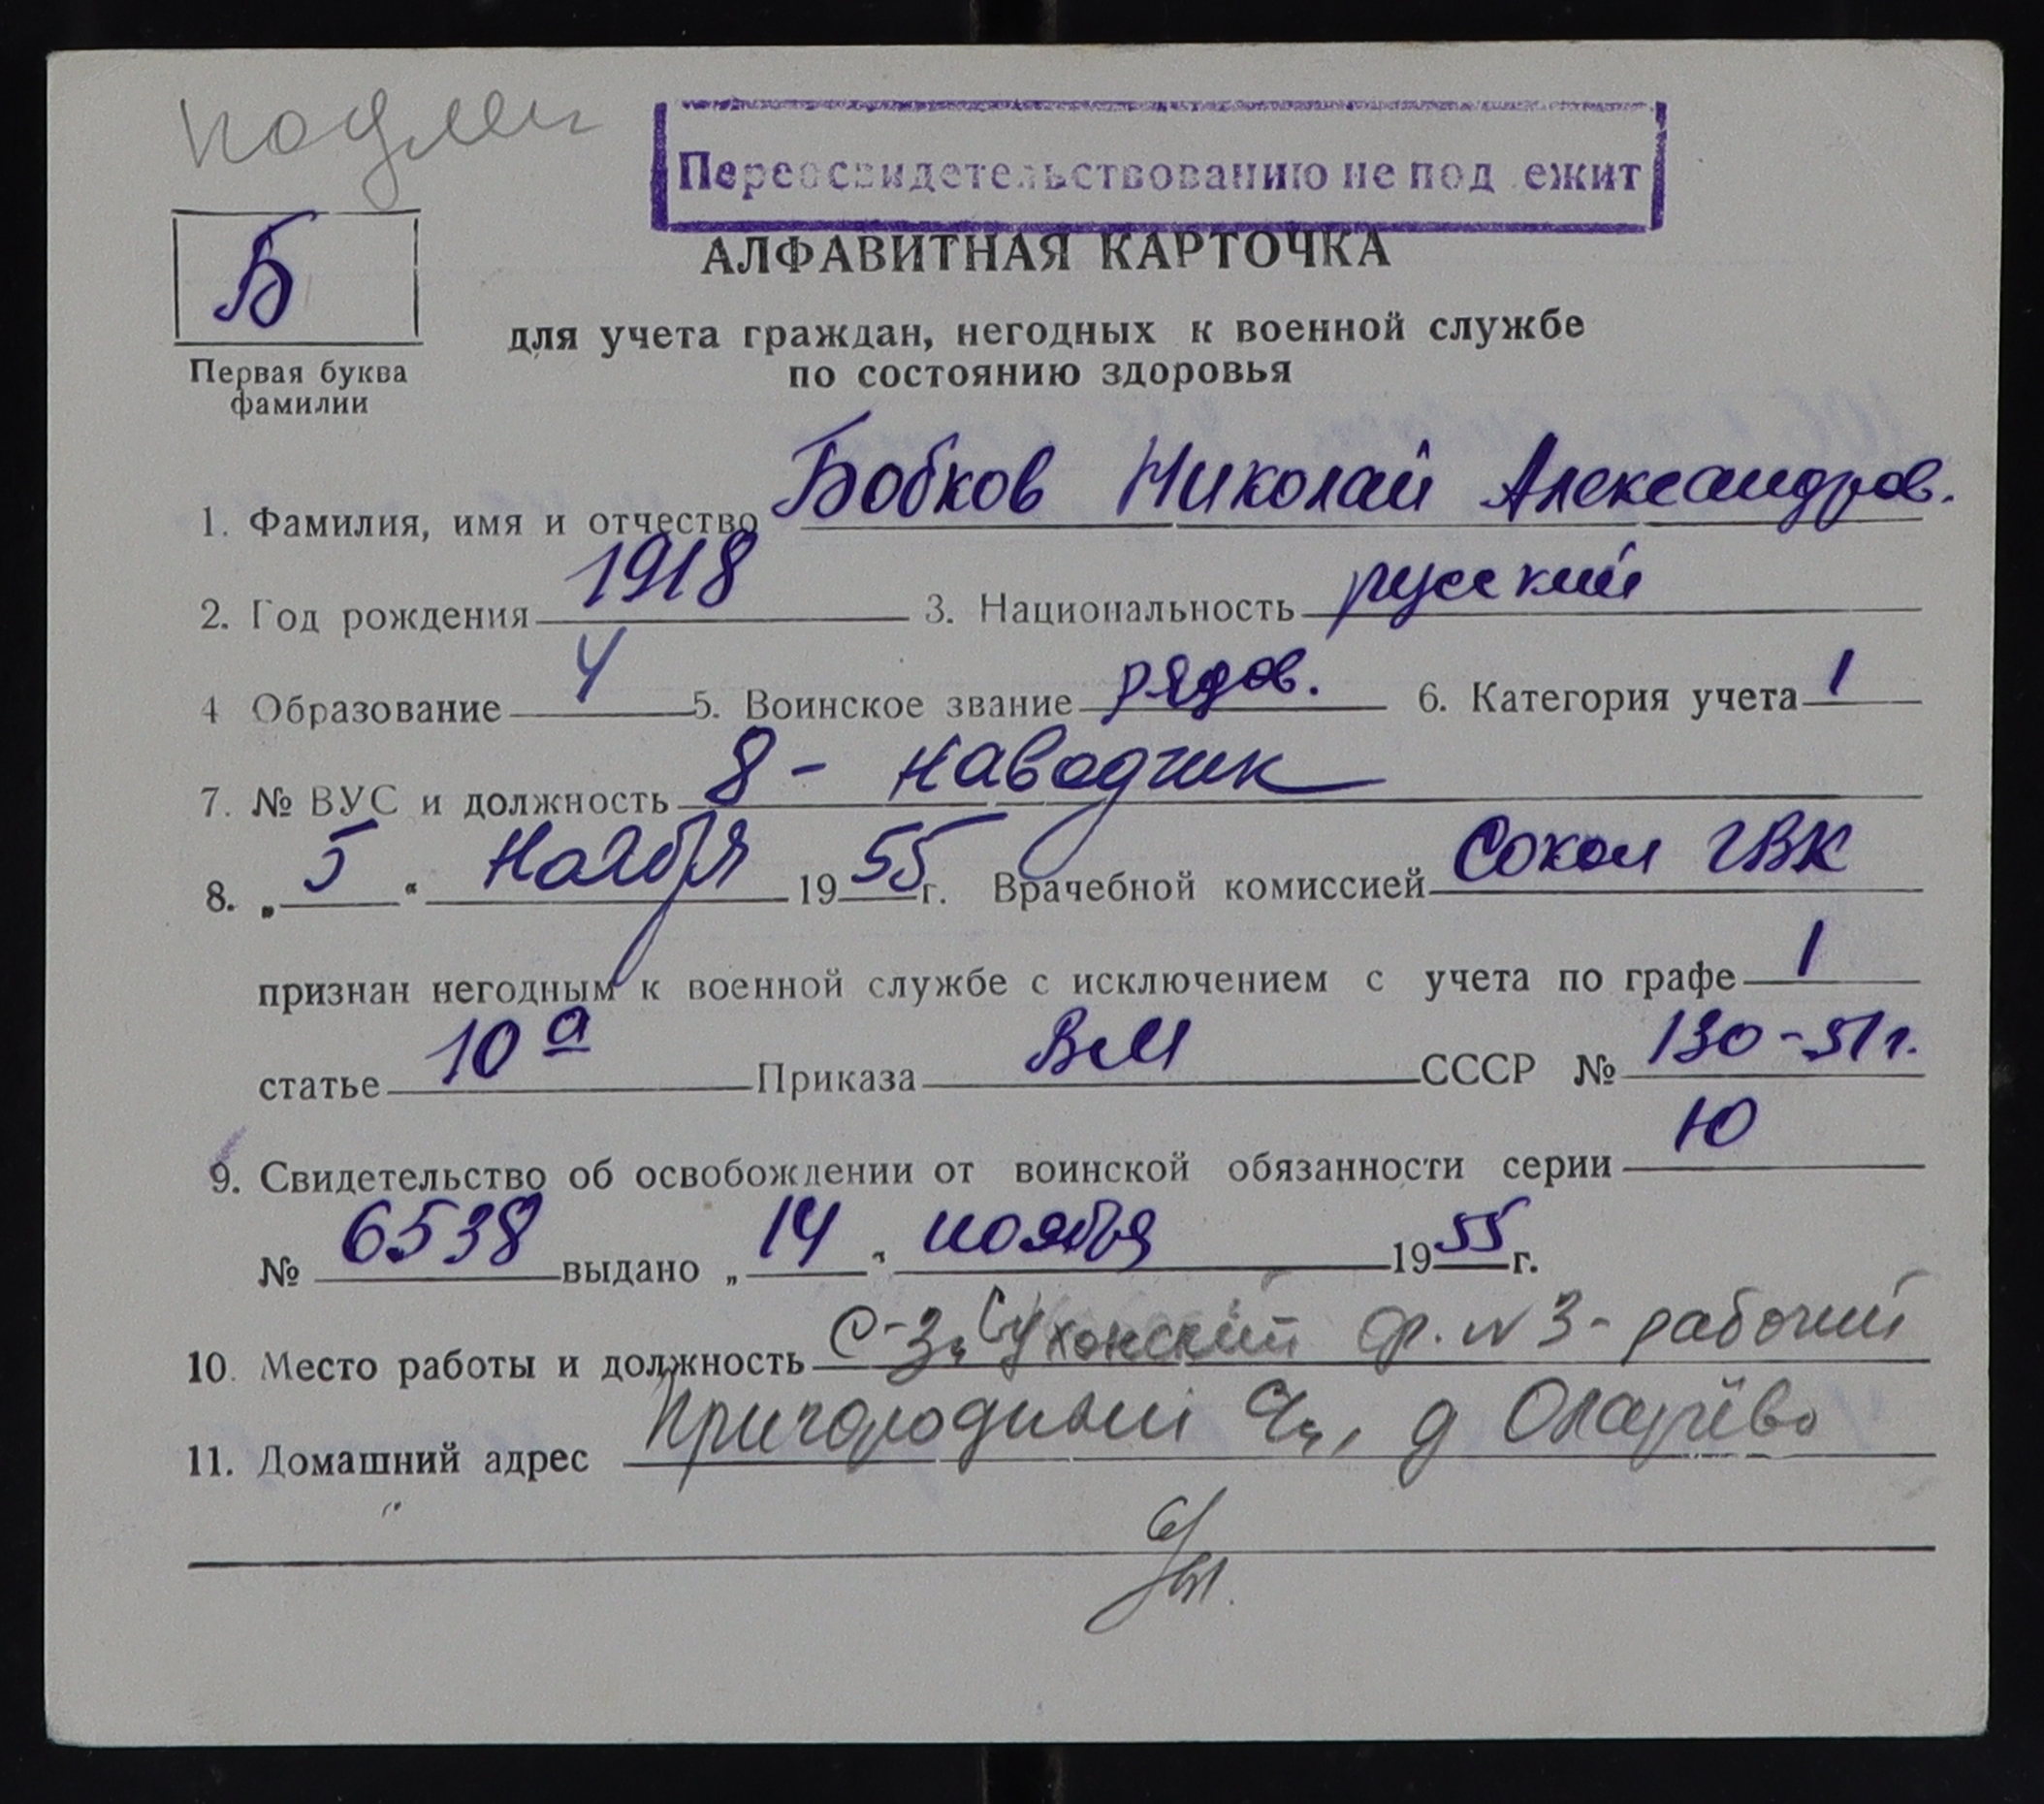 Переосвидетельствованию не под ежит
Б
АЛФАВИТНАЯ КАРТОЧКА
Первая буква
фамилии
для учета граждан, негодных к военной службе
по состоянию здоровья
1. Фамилия, имя и отчество Бобков Николай Александров.
2. Год рождения 1918 3. Национальность русский
4 Образование 4 5. Воинское звание рядов. 6. Категория учета 1
7. № ВУС и должность 8 - наводчик
8. „ 5 “ Ноября 1955 г. Врачебной комиссией Сокол ГВК
признан негодным к военной службе с исключением с учета по графе 1
статье 10 а Приказа ВМ СССР № 130-51 г.
9. Свидетельство об освобождении от воинской обязанности серии Ю
№ 6538 выдано „ 14 “ ноября 1955 г.
10. Место работы и должность с-з Сухонский №3 - рабочий
11. Домашний адрес Пригородный д Оларёво